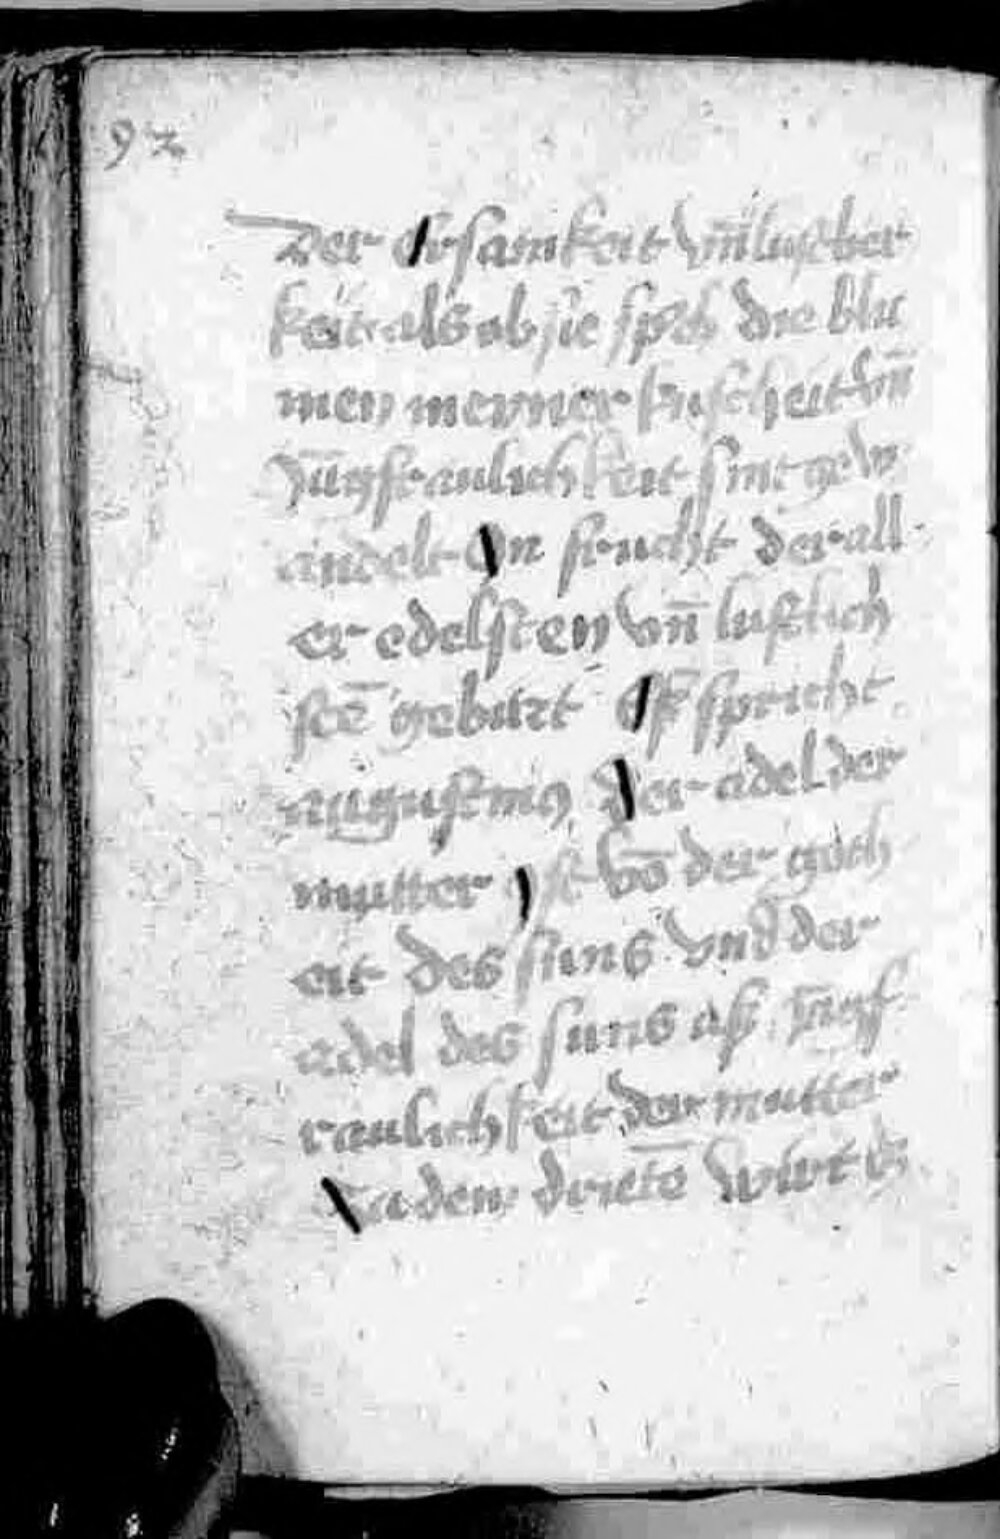 92
Der Ersamkeit vnd lustber
keit als ob sie sprech die blu
men meyner kuscheit vn̄
Jūgfraulichkeit sint gew
andelt In frucht der all
er edelsten vn̄ lustlich
stē geburt Es spricht
augustinꝰ Der adel der
mutter Ist vō der goth
eit des suns vnd der
adel des suns ist Jūgf
raulichkeit der mutter
Zu dem dritē wirt